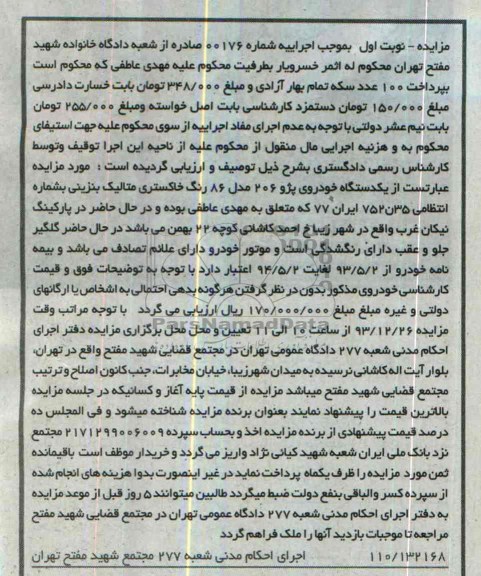 مزایده - نوبت اول بموجب اجراییه شماره ۰۰۱۷۶ صادره از شعبه دادگاه خانواده شهید
مفتح تهران محکوم له اثمر خسرویار بطرفیت محکوم علیه مهدی عاطفی که محکوم است
بپرداخت ۱۰۰ عدد سکه تمام بهار آزادی و مبلغ ۳۴۸/۰۰۰ تومان بابت خسارت دادرسی
مبلغ ۱۵۰/۰۰۰ تومان دستمزد کارشناسی بابت اصل خواسته ومبلغ ۲۵۵/۰۰۰ تومان
بابت نیم عشر دولتی با توجه به عدم اجرای مفاد اجراییه از سوی محکوم علیه جهت استیفای
محکوم به و هزنیه اجرایی مال منقول از محکوم علیه از ناحیه این اجرا توقیف وتوسط
کارشناس رسمی دادگستری بشرح ذیل توصیف و ارزیابی گردیده است : مورد مزایده
عبارتست از یکدستگاه خودروی پژو ۲۰۶ مدل ۸۶ رنگ خاکستری متالیک بنزینی بشماره
انتظامی ۳۵ن۷۵۲ ایران ۷۷ که متعلق به مهدی عاطفی بوده و در حال حاضر در پارکینگ
نیکان غرب واقع در شهر زیبا خ احمد کاشانی کوچه ۲۲ بهمن می باشد در حال حاضر گلگیر
جلو و عقب دارای رنگشدگی است و موتور خودرو دارای علائم تصادف می باشد و بیمه
نامه خودرو از ۹۳/۵/۲ لغایت ۹۴/۵/۲ اعتبار دارد با توجه به توضیحات فوق و قیمت
کارشناسی خودروی مذکور بدون در نظر گرفتن هرگونه بدهی احتمالی به اشخاص یا ارگانهای
دولتی و غیره مبلغ مبلغ ۱۷۰/۰۰۰/۰۰۰ ریال ارزیابی می گردد با توجه مراتب وقت
مزایده ۹۳/۱۲/۲۶ از ساعت ۱۰ الی ۱۱ تعیین و محل محل برگزاری مزایده دفتر اجرای
احکام مدنی شعبه ۲۷۷ دادگاه عمومی تهران در مجتمع قضایی شهید مفتح واقع در تهران،
بلوار آیت اله کاشانی نرسیده به میدان شهرزیبا، خیابان مخابرات، جنب کانون اصلاح و تربیت
مجتمع قضایی شهید مفتح میباشد مزایده از قیمت پایه آغاز و کسانیکه در جلسه مزایده
بالاترین قیمت را پیشنهاد نمایند بعنوان برنده مزایده شناخته میشود و فی المجلس ده
درصد قیمت پیشنهادی از برنده مزایده اخذ و بحساب سپرده ۲۱۷۱۲۹۹۰۰۶۰۰۹ مجتمع
نزد بانک ملی ایران شعبه شهید کیانی نژاد واریز می گردد و خریدار موظف است باقیمانده
ثمن مورد مزایده را ظرف یکماه پرداخت نماید در غیر اینصورت بدوا هزینه های انجام شده
از سپرده کسر والباقی بنفع دولت ضبط میگردد طالبین میتوانند ۵ روز قبل از موعد مزایده
به دفتر اجرای احکام مدنی شعبه ۲۷۷ دادگاه عمومی تهران در مجتمع قضایی شهید مفتح
مراجعه تا موجبات بازدید آنها را ملک فراهم گردد
۱۱۰/۱۳۲۱۶۸ اجرای احکام مدنی شعبه ۲۷۷ مجتمع شهید مفتح تهران